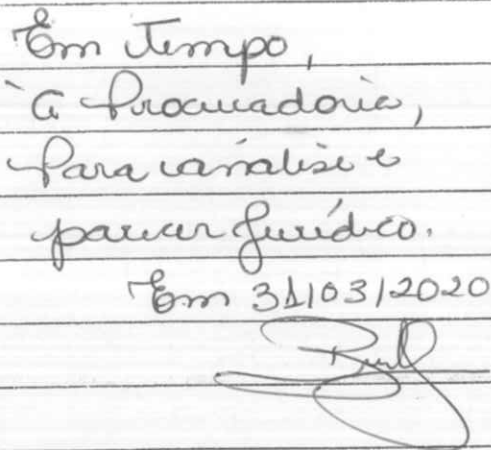 Em tempo,
À Procuradoria,
Para análise e
parecer jurídico.
Em 31/03/2020